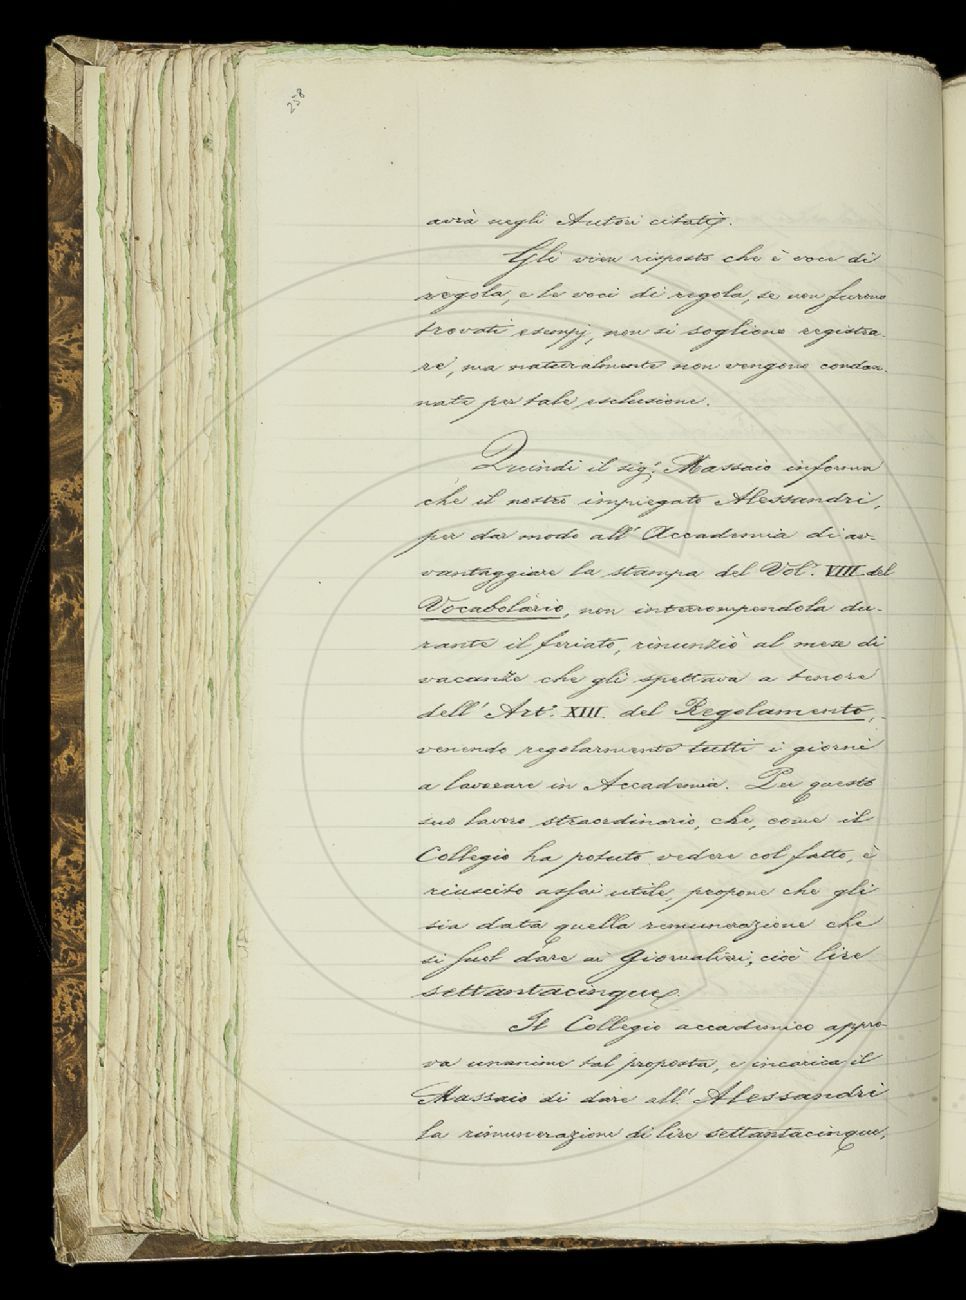 258
avrà negli Autori citati.
Gli vien risposto che è voce di
règola, e le voci di regola, se non furono
trovati esempj, non si sogliono registra-
re, ma naturalmente non vengono condan-
nate per tale esclusione.
Quindi il sig.r Massaio informa
che il nostro impiegato Alessandri,
per dar modo all'Accademia di av-
vantaggiare la stampa del Vol.e VIII del
Vocabolario, non interrompendola du-
rante il feriato, rinunziò al mese di
vacanze che gli spettava a tenore
dell'Art.o XIII del Regolamento,
venendo regolarmente tutti i giorni
a lavorare in Accademia. Per questo
suo lavoro straordinario, che, come il
Collegio ha potuto vedere col fatto, è
riuscito assai utile, propone che gli
sia data quella remunerazione che
si suol dare ai Giornalieri, cioè lire
settantacinque.
Il Collegio accademico appro-
va unanime tal proposta, e incarica il
Massaio di dare all'Alessandri
la rimunerazione di lire settantacinque,